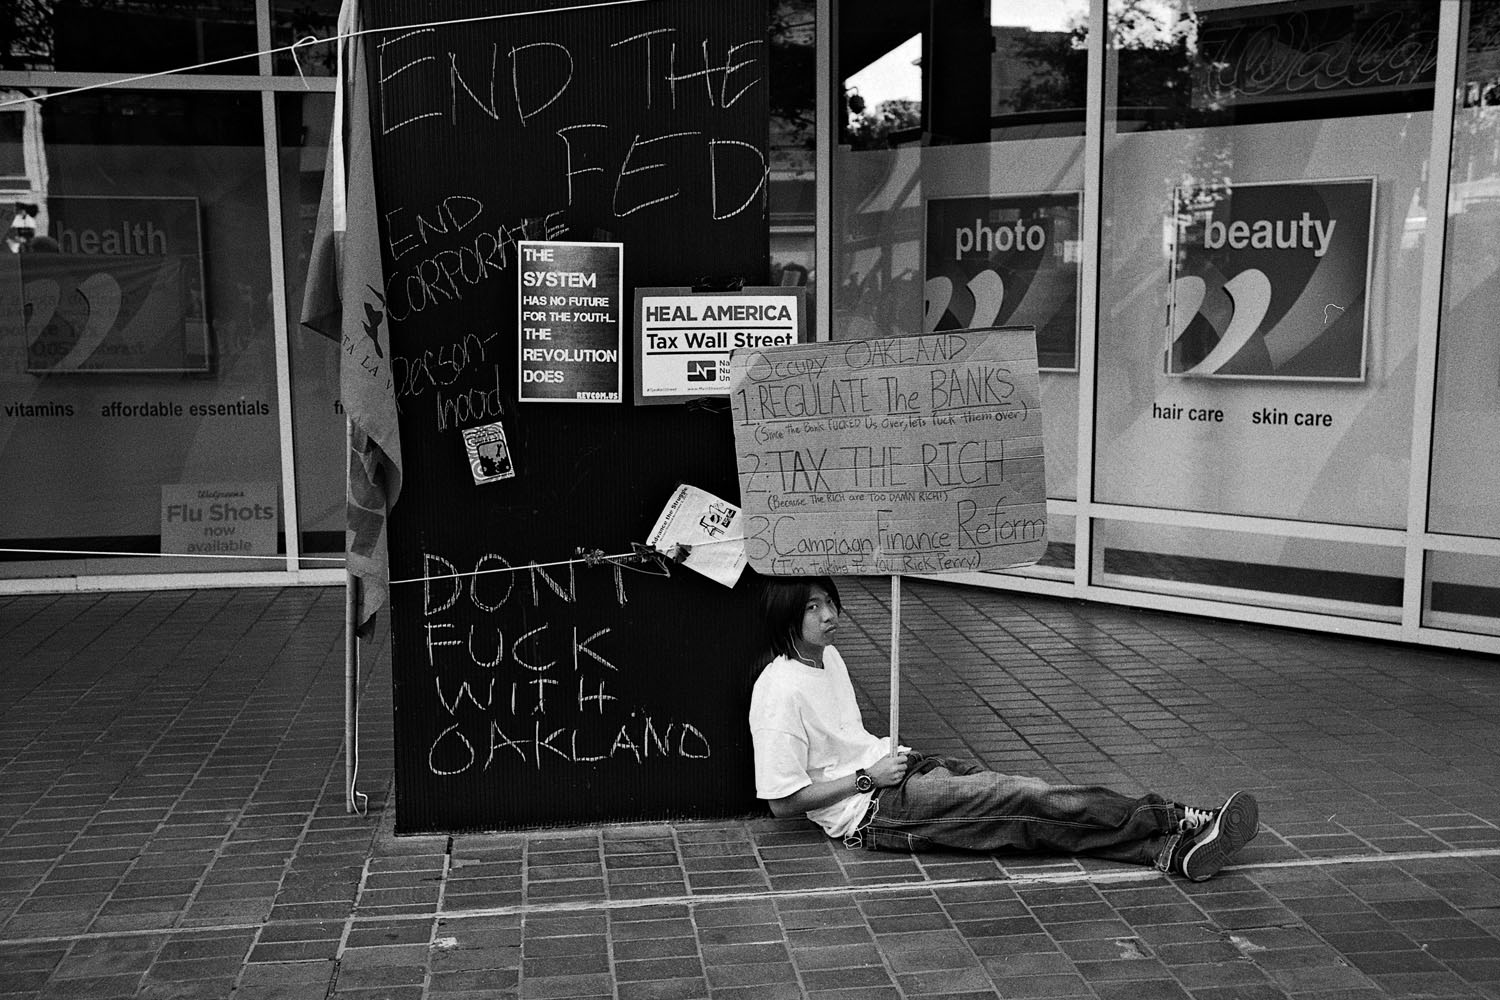 END THE
FED
END
CORPORATE
person-
hood
THE
SYSTEM
HAS NO FUTURE
FOR THE YOUTH...
THE
REVOLUTION
DOES
REVCOM.US
HEAL AMERICA
Tax Wall Street
Na
Nu
Un
OCCUPY OAKLAND
1. REGULATE The BANKS
(Since the Bank FUCKED Us over, lets fuck them over)
2: TAX THE RICH
(Because The RICH are TOO DAMN RICH!)
3: Campiagn Finance Reform
(I'm Talking to You Rick Perry)
Advance the Struggle
DON'T
FUCK
WITH
OAKLAND
health
vitamins affordable essentials
Walgreens
Flu Shots
now
available
photo
beauty
hair care skin care
TA LA V